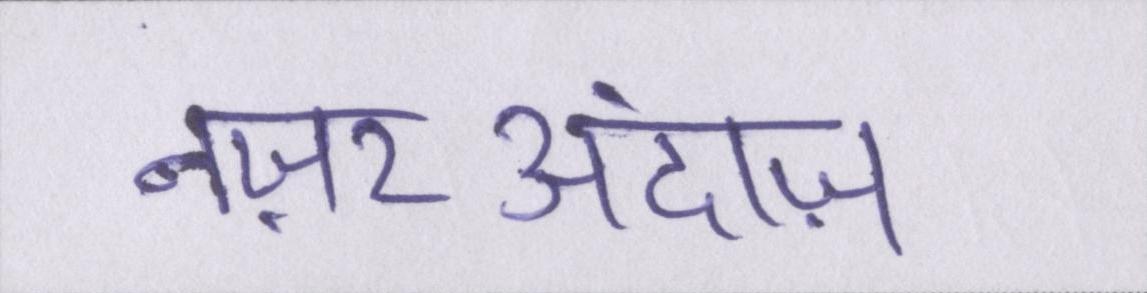 नज़र अंदाज़